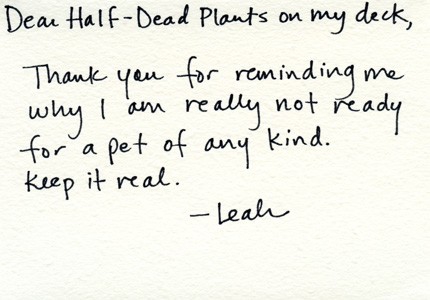 Dear Half-Dead Plants on my deck,
Thank you for reminding me
why I am really not ready
for a pet of any kind.
Keep it real.
—Leah